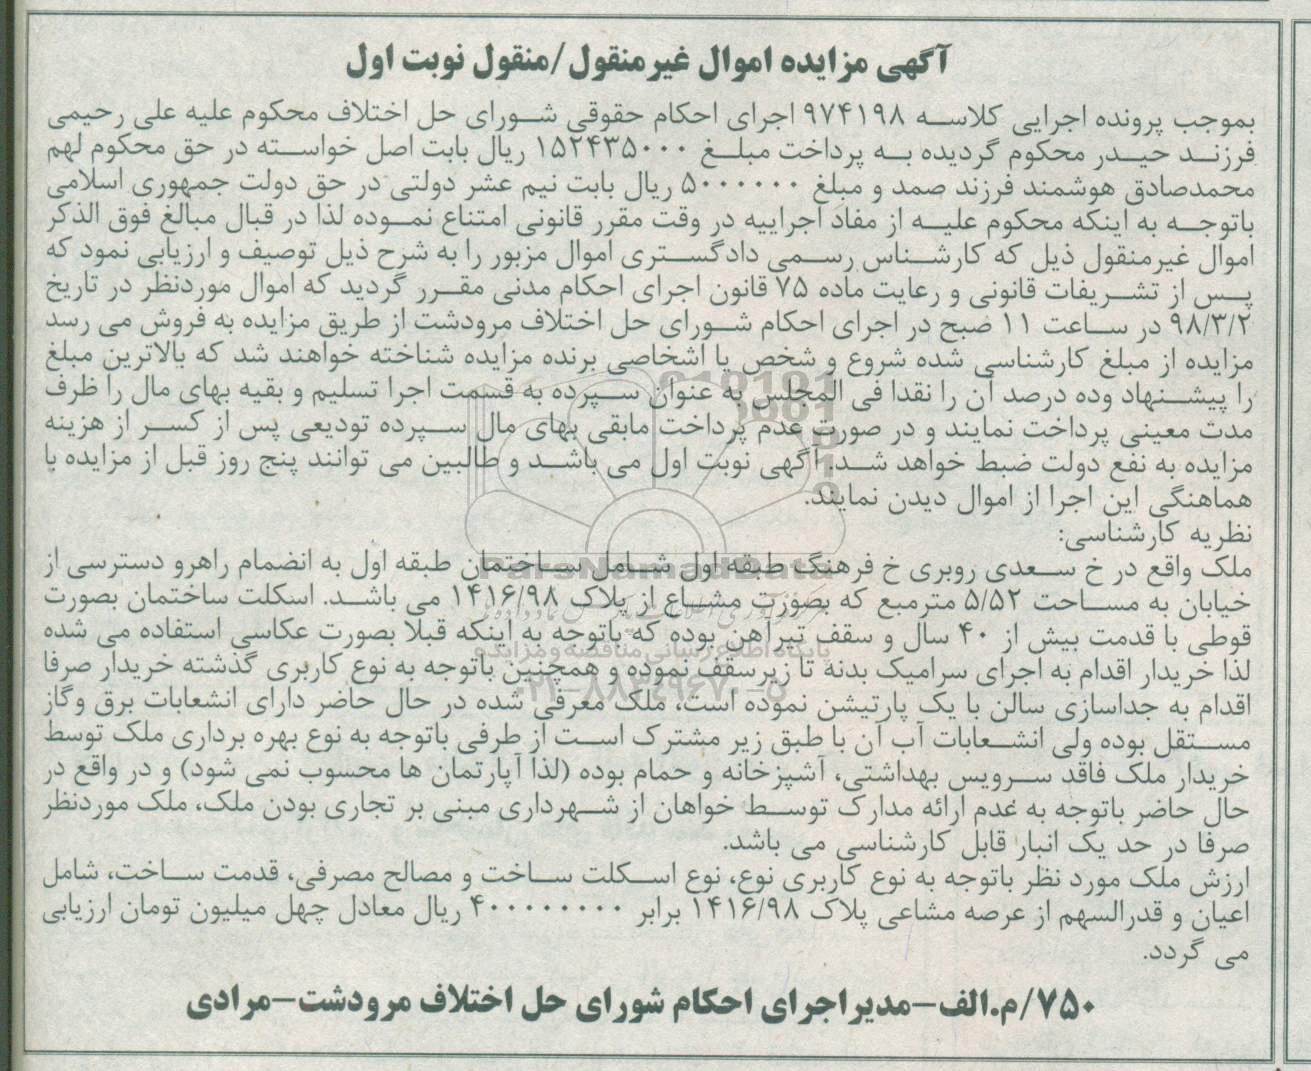 آگهی مزایده اموال غیرمنقول/منقول نوبت اول
بموجب پرونده اجرایی کلاسه ۹۷۴۱۹۸ اجرای احکام حقوقی شورای حل اختلاف محکوم علیه علی رحیمی
فرزند حیدر محکوم گردیده به پرداخت مبلغ ۱۵۲۴۳۵۰۰۰ ریال بابت اصل خواسته در حق محکوم لهم
محمدصادق هوشمند فرزند صمد و مبلغ ۵۰۰۰۰۰۰ ریال بابت نیم عشر دولتی در حق دولت جمهوری اسلامی
باتوجه به اینکه محکوم علیه از مفاد اجراییه در وقت مقرر قانونی امتناع نموده لذا در قبال مبالغ فوق الذکر
اموال غیرمنقول ذیل که کارشناس رسمی دادگستری اموال مزبور را به شرح ذیل توصیف و ارزیابی نمود که
پس از تشریفات قانونی و رعایت ماده ۷۵ قانون اجرای احکام مدنی مقرر گردید که اموال موردنظر در تاریخ
۹۸/۳/۲ در ساعت ۱۱ صبح در اجرای احکام شورای حل اختلاف مرودشت از طریق مزایده به فروش می رسد
مزایده از مبلغ کارشناسی شده شروع و شخص یا اشخاصی برنده مزایده شناخته خواهند شد که بالاترین مبلغ
را پیشنهاد وده درصد آن را نقدا فی المجلس به عنوان سپرده به قسمت اجرا تسلیم و بقیه بهای مال را ظرف
مدت معینی پرداخت نمایند و در صورت عدم پرداخت مابقی بهای مال سپرده تودیعی پس از کسر از هزینه
مزایده به نفع دولت ضبط خواهد شد. آگهی نوبت اول می باشد و طالبین می توانند پنج روز قبل از مزایده با
هماهنگی این اجرا از اموال دیدن نمایند.
نظریه کارشناسی:
ملک واقع در خ سعدی روبری خ فرهنگ طبقه اول شامل ساختمان طبقه اول به انضمام راهرو دسترسی از
خیابان به مساحت ۵/۵۲ مترمربع که بصورت مشاع از پلاک ۱۴۱۶/۹۸ می باشد. اسکلت ساختمان بصورت
قوطی با قدمت بیش از ۴۰ سال و سقف تیرآهن بوده که باتوجه به اینکه قبلا بصورت عکاسی استفاده می شده
لذا خریدار اقدام به اجرای سرامیک بدنه تا زیرسقف نموده و همچنین باتوجه به نوع کاربری گذشته خریدار صرفا
اقدام به جداسازی سالن با یک پارتیشن نموده است، ملک معرفی شده در حال حاضر دارای انشعابات برق وگاز
مستقل بوده ولی انشعابات آب آن با طبق زیر مشترک است از طرفی باتوجه به نوع بهره برداری ملک توسط
خریدار ملک فاقد سرویس بهداشتی، آشپزخانه و حمام بوده (لذا آپارتمان ها محسوب نمی شود) و در واقع در
حال حاضر باتوجه به عدم ارائه مدارک توسط خواهان از شهرداری مبنی بر تجاری بودن ملک، ملک موردنظر
صرفا در حد یک انبار قابل کارشناسی می باشد.
ارزش ملک مورد نظر باتوجه به نوع کاربری نوع، نوع اسکلت ساخت و مصالح مصرفی، قدمت ساخت، شامل
اعیان و قدرالسهم از عرصه مشاعی پلاک ۱۴۱۶/۹۸ برابر ۴۰۰۰۰۰۰۰۰ ریال معادل چهل میلیون تومان ارزیابی
می گردد.
۷۵۰/م.الف-مدیراجرای احکام شورای حل اختلاف مرودشت-مرادی
ParsNamadData
پایگاه اطلاع رسانی مناقصه و مزایده
۰۲۱-۸۸۳۴۹۶۷۰-۵